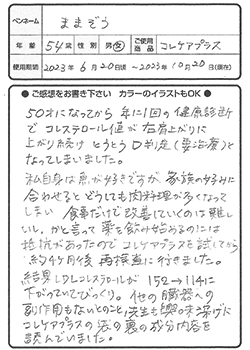 ペンネーム ままぞう
年齢 54歳 性別 男・女 ご使用商品 コレケアプラス
使用期間 2023年6月20日頃 ~2023年10月20日(現在)
● ご感想をお書き下さい カラーのイラストもOK ●
50才になってから 年に1回の健康診断
で コレステロール値が 右肩上がりに
上がり続け とうとう D判定(要治療)と
なってしまいました。
私自身は魚が好きですが、家族の好みに
合わせると どうしても肉料理が多くなって
しまい 食事だけで改善していくのは難し
いし、かと言って 薬を飲み始めるのには
抵抗があったので コレケアプラスを試してから
約4ヶ月後 再検査に行きました。
結果 LDLコレステロールが 152→114に
下がっていてびっくり。 他の臓器への
副作用もないとのこと、先生も興味深げに
コレケアプラスの袋の裏の成分内容を
読んでいました。